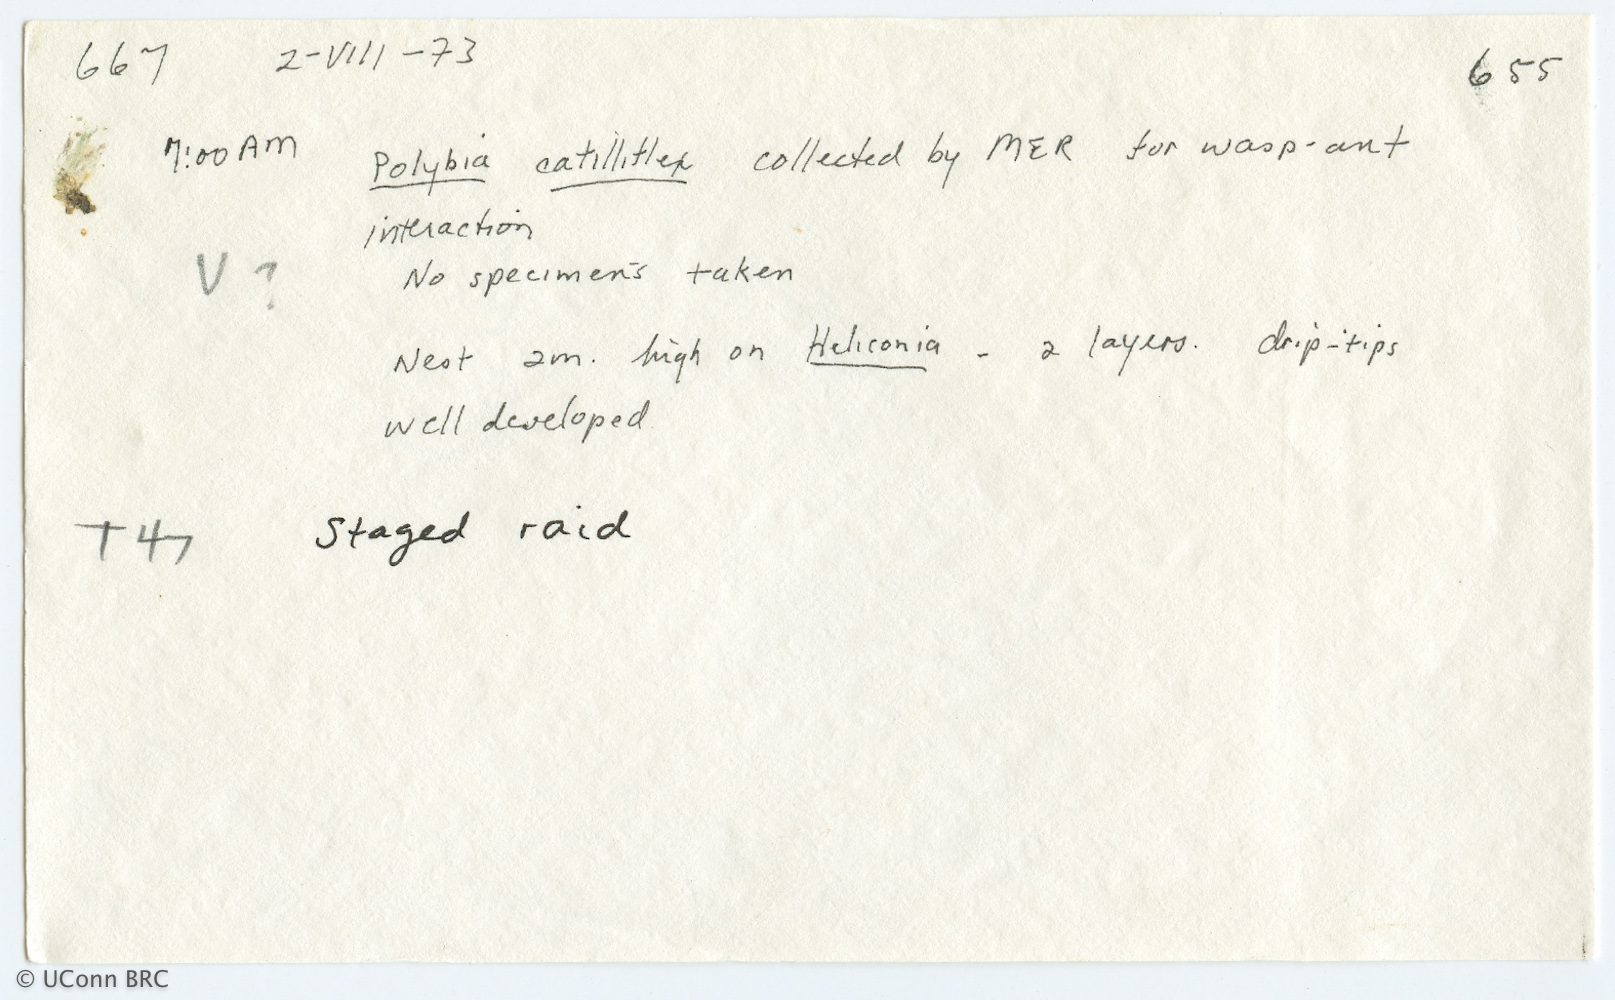 667 2-VIII-73 655
7:00 AM Polybia catillifex collected by MER for wasp-ant
interaction
V ? No specimens taken
Nest 2m. high on Heliconia - 2 layers. drip-tips
well developed
T47 Staged raid
© UConn BRC